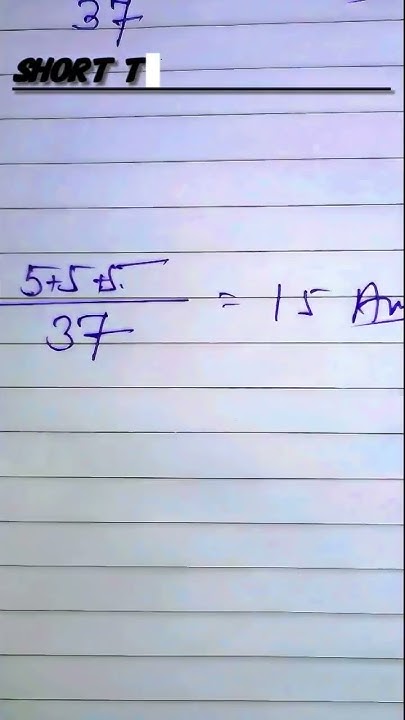 37
SHORT T
5+5+5
37
= 15 An